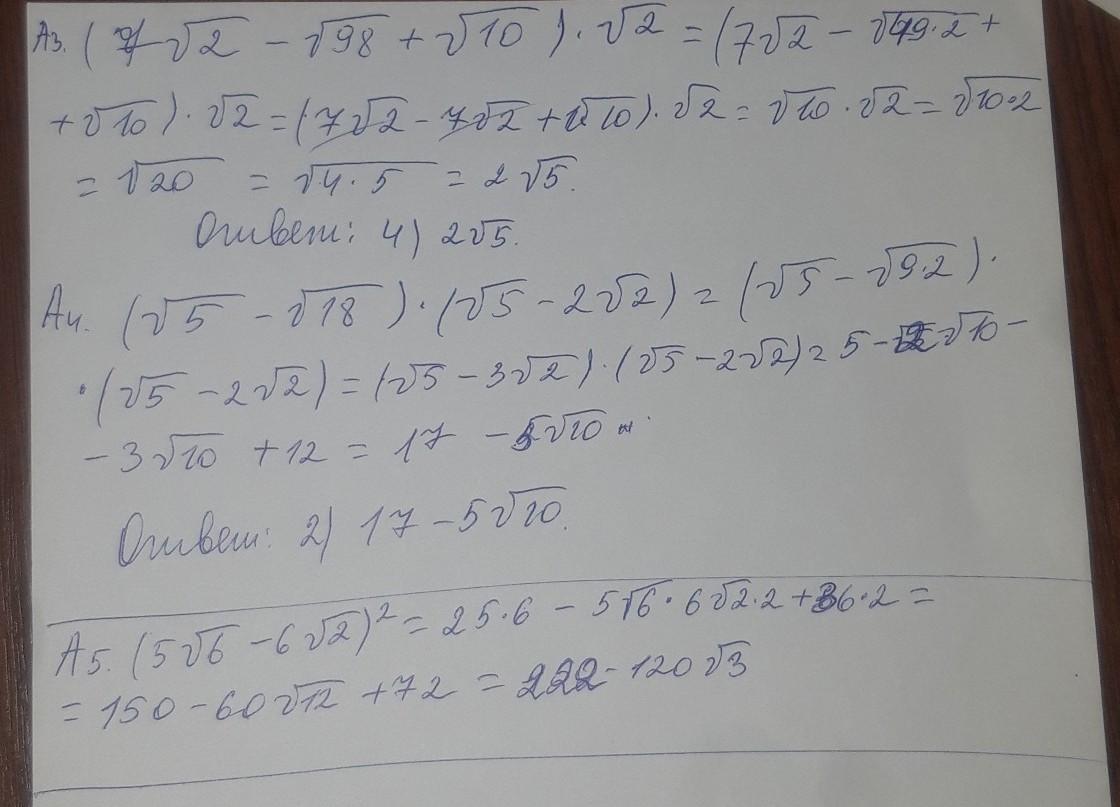 А3. (7√2 − √98 + √10) · √2 = (7√2 − √49·2 +
+ √10) · √2 = (7√2 − 7√2 + √10) · √2 = √10 · √2 = √10·2
= √20 = √4·5 = 2√5.
Ответ: 4) 2√5.
А4. (√5 − √18) · (√5 − 2√2) = (√5 − √9·2) ·
· (√5 − 2√2) = (√5 − 3√2) · (√5 − 2√2) = 5 − 2√10 −
− 3√10 + 12 = 17 − 5√10
Ответ: 2) 17 − 5√10.
А5. (5√6 − 6√2)² = 25·6 − 5√6 · 6√2·2 + 36·2 =
= 150 − 60√12 + 72 = 222 − 120√3